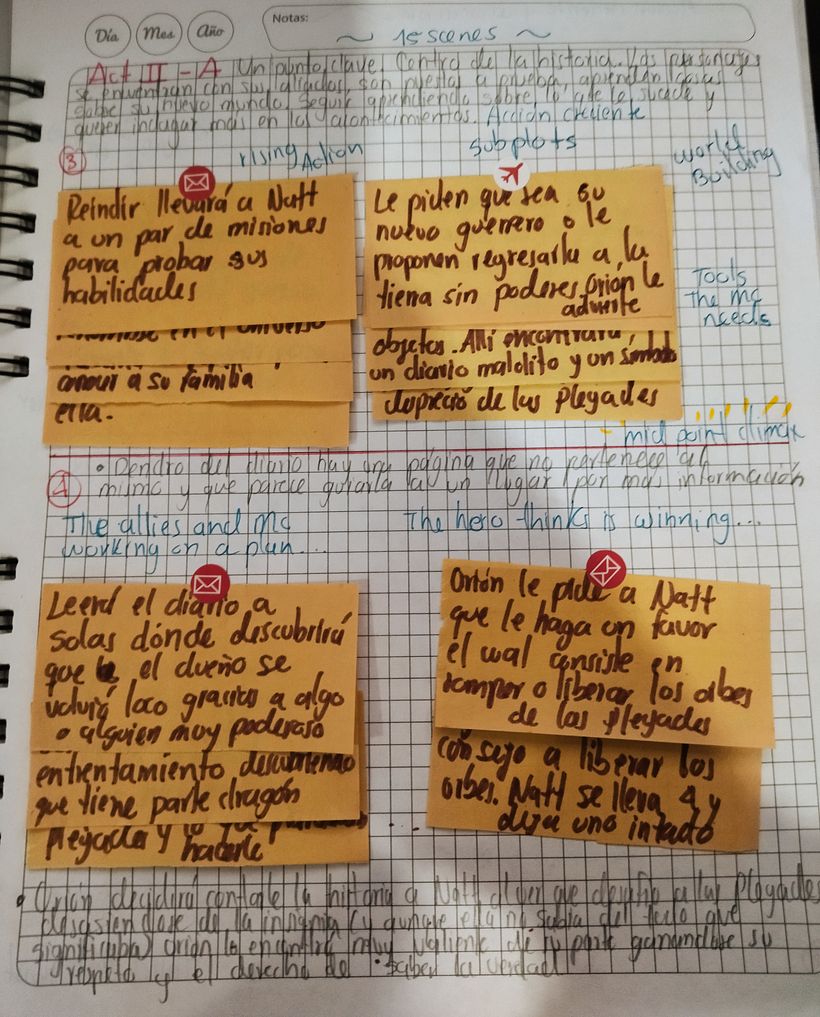 Día
Mes
Año
Notas:
~ 15 scenes ~
Act II - A Un punto clave, centro de la historia. Los personajes
se encuentran con sus aliados, son puestos a prueba, aprenden cosas
sobre su nuevo mundo. Seguir aprendiendo sobre lo que le sucede y
querer indagar más en los acontecimientos. Acción creciente
3
rising Action
subplots
world Building
Reindir llevará a Natt
a un par de misiones
para probar sus
habilidades
en el universo
a su familia
ella.
Le piden que sea su
nuevo guerrero o le
proponen regresarla a la
tierra sin poderes, Orion le
advierte
objetos. Allí encontrará
un diario maldito y un símbolo
de las Pleyades
Tools
the mc
needs
- mid point climax
4
• Dentro del diario hay una página que no pertenece al
mismo y que parece guiarla a un lugar por más información
The allies and mc
working on a plan...
The hero thinks is winning...
Leerá el diario a
solas dónde descubrirá
que el dueño se
volvió loco gracias a algo
o alguien muy poderoso
entrentamiento descubriendo
que tiene parte dragón
Pleyades y lo que
hacerle
Orión le pide a Natt
que le haga un favor
el wal consiste en
romper o liberar los orbes
de las Pleyades
consejo a liberar los
orbes. Natt se lleva 4 y
deja uno intacto
• Orión decidirá contarle la historia a Natt al ver que desafio a las Pleyades
desasiendose de la insignia (y aunque ella no sabía del todo que
significaba) Orión lo encontró muy valiente de su parte ganandose su
respeto y el derecho de saber la verdad